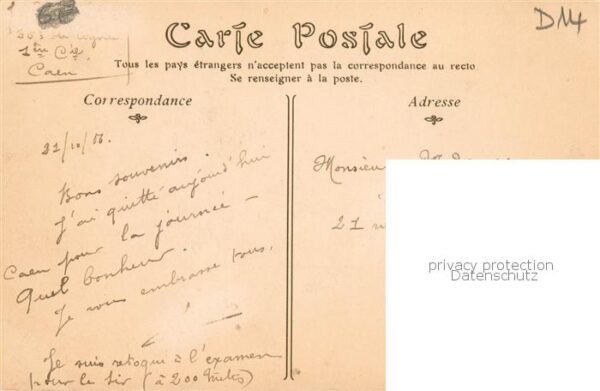 D14
36e de ligne
1ère Cie
Caen
Carte Postale
Tous les pays étrangers n'acceptent pas la correspondance au recto
Se renseigner à la poste.
Correspondance
21/10/
Bons souvenirs.
J'ai quitté aujourd'hui
Caen pour la journée –
Quel bonheur.
Je vous embrasse tous.
Je suis retoqué à l'examen
pour le tir (à 200 mètres)
Adresse
Monsieur
21
privacy protection
Datenschutz